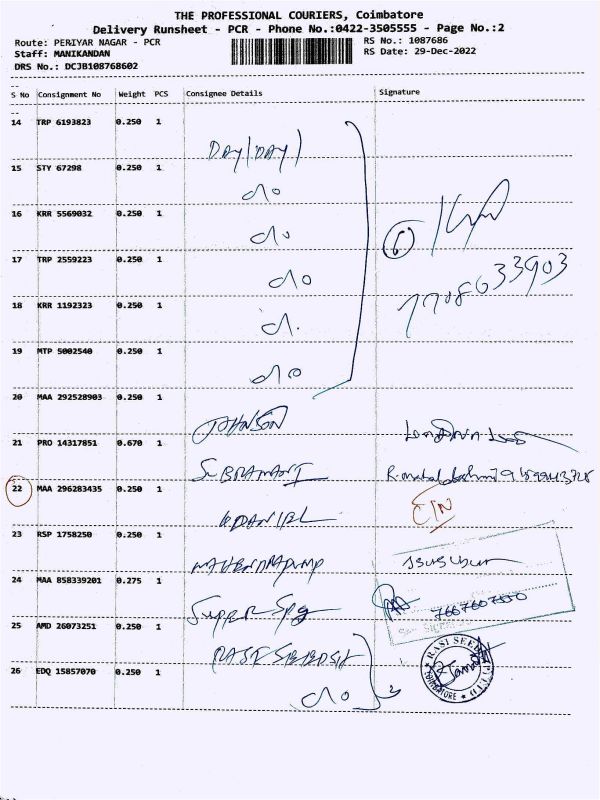 THE PROFESSIONAL COURIERS, Coimbatore
Delivery Runsheet - PCR - Phone No.:0422-3505555 - Page No.:2
Route: PERIYAR NAGAR - PCR
RS No.: 1087686
Staff: MANIKANDAN
RS Date: 29-Dec-2022
DRS No.: DCJB108768602
S No Consignment No Weight PCS Consignee Details Signature
14 TRP 6193823 0.250 1
DAY (DAY)
15 STY 67298 0.250 1
do
16 KRR 5569032 0.250 1
do
6
17 TRP 2559223 0.250 1
do
7708633903
18 KRR 1192323 0.250 1
19 MTP 5002540 0.250 1
do
20 MAA 292528903 0.250 1
JOHNSON
21 PRO 14317851 0.670 1
SUBRAMANI
22 MAA 296283435 0.250 1
DANIEL
23 RSP 1758250 0.250 1
24 MAA 858339201 0.275 1
SUPER SPG
25 AMD 26073251 0.250 1
RASI
RASI SEEDS
COIMBATORE
26 EDQ 15857070 0.250 1
do